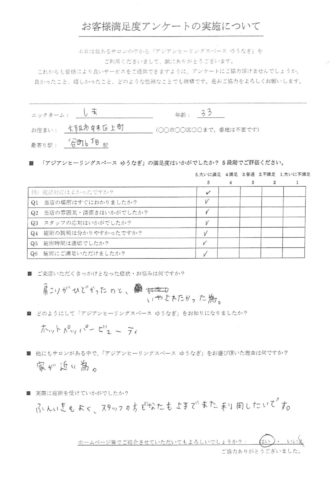 お客様満足度アンケートの実施について
これからも皆様により良いサービスをご提供できますように、アンケートにご協力頂けませんでしょうか。
ニックネーム：
年齢： 33
お住まい：
(〇〇市〇〇区〇〇まで、番地は不要です)
最寄り駅：
■ 「アジアンヒーリングスペース ゆうなぎ」の満足度はいかがでしたか？ 5段階でご評価ください。
5.大いに満足 4.満足 3.普通 2.不満足 1.大いに不満
5 4 3 2 1
Q1 当店の場所はすぐにわかりましたか？
Q2 当店の雰囲気・清潔さはいかがでしたか？
Q3 スタッフの応対はいかがでしたか？
Q4 施術の説明は分かりやすかったですか？
Q5 施術時間は適切でしたか？
Q6 施術にご満足いただけましたか？
■ ご来店いただくきっかけとなった症状・お悩みは何ですか？
肩こりがひどかったのと、
いやされたかった為。
■ どのようにして「アジアンヒーリングスペース ゆうなぎ」をお知りになりましたか？
ホットペッパービューティ
■ 他にもサロンがある中で、「アジアンヒーリングスペース ゆうなぎ」をお選び頂いた理由は何ですか？
家が近い為。
■ 実際に施術を受けていかがでしたか？
ふんいきもよく、スタッフの方
また利用したいです。
ホームページ等でご紹介させていただいてもよろしいでしょうか？ はい ・ いいえ
ご協力ありがとうございました。